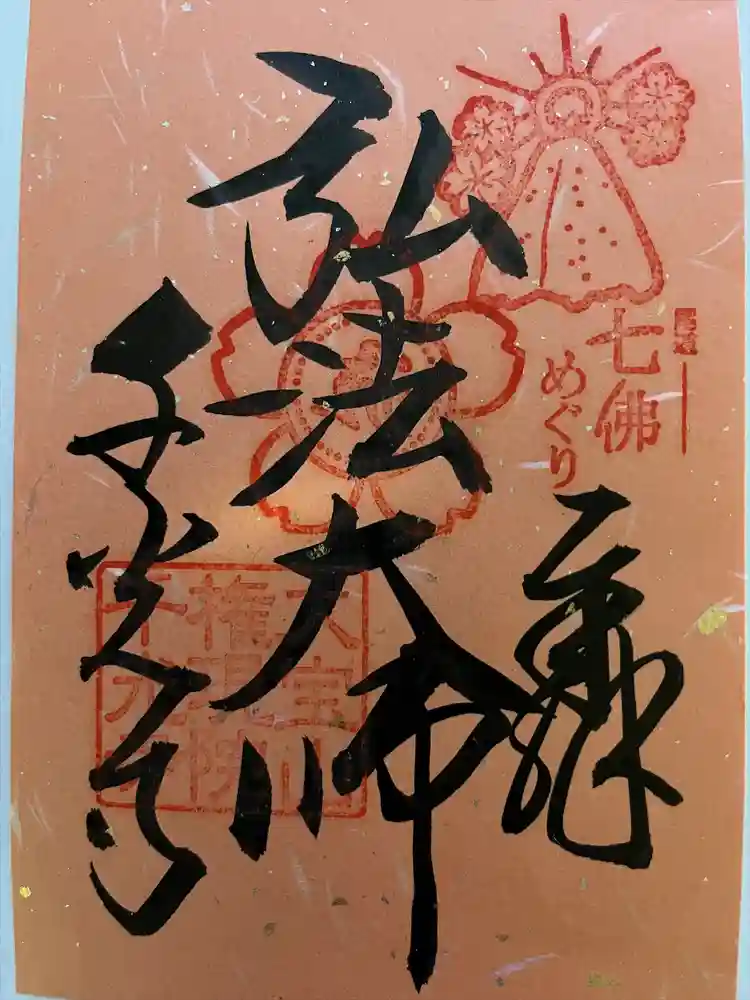 尾道
七佛
めぐり
弘法大師
千光寺
大宝山
権現院
千光寺